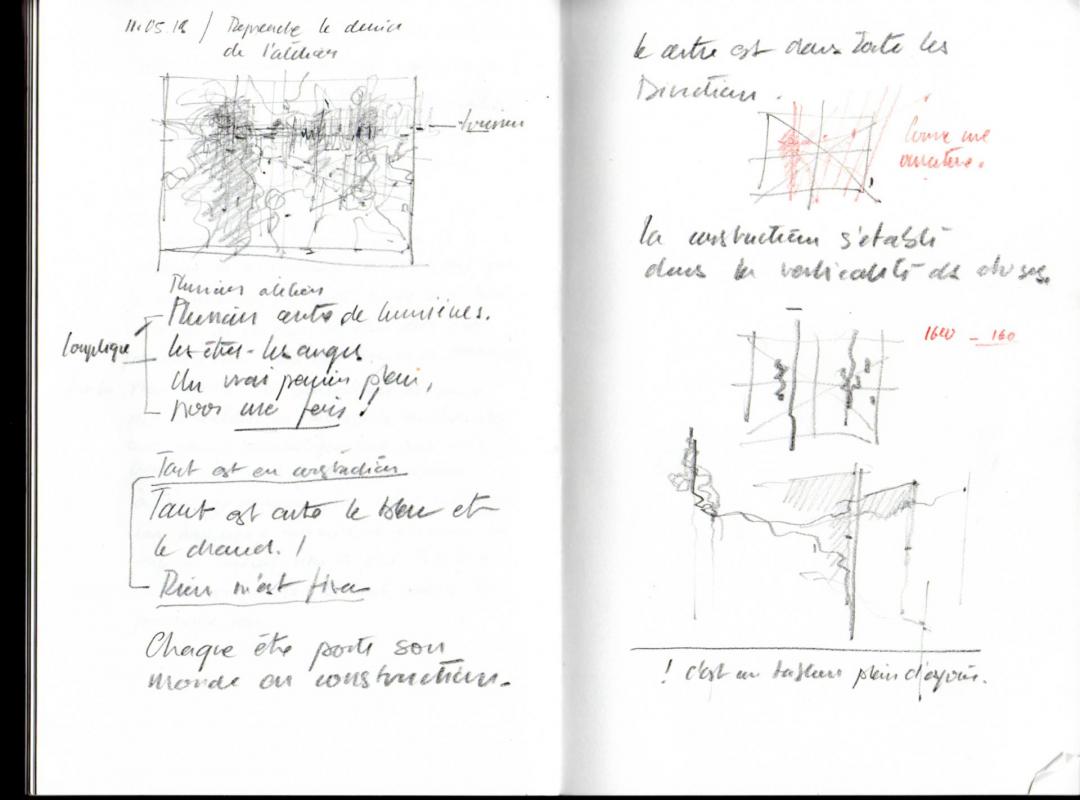 11.05.18 / Reprendre le dessin
de l'atelier
Plusieurs ateliers
Plusieurs centre de lumières.
les êtres - les anges
Un vrai panier plein,
pour une fois !
Tout est en construction
Tout est entre le bleu et
le chaud. !
Rien n'est fixe
Chaque être porte son
monde en construction.
le centre est dans toute les
Directions.
Comme une
ossature.
la construction s'établi
dans la verticalité des choses.
1600 - 160
! c'est un tableau plein d'espoir.